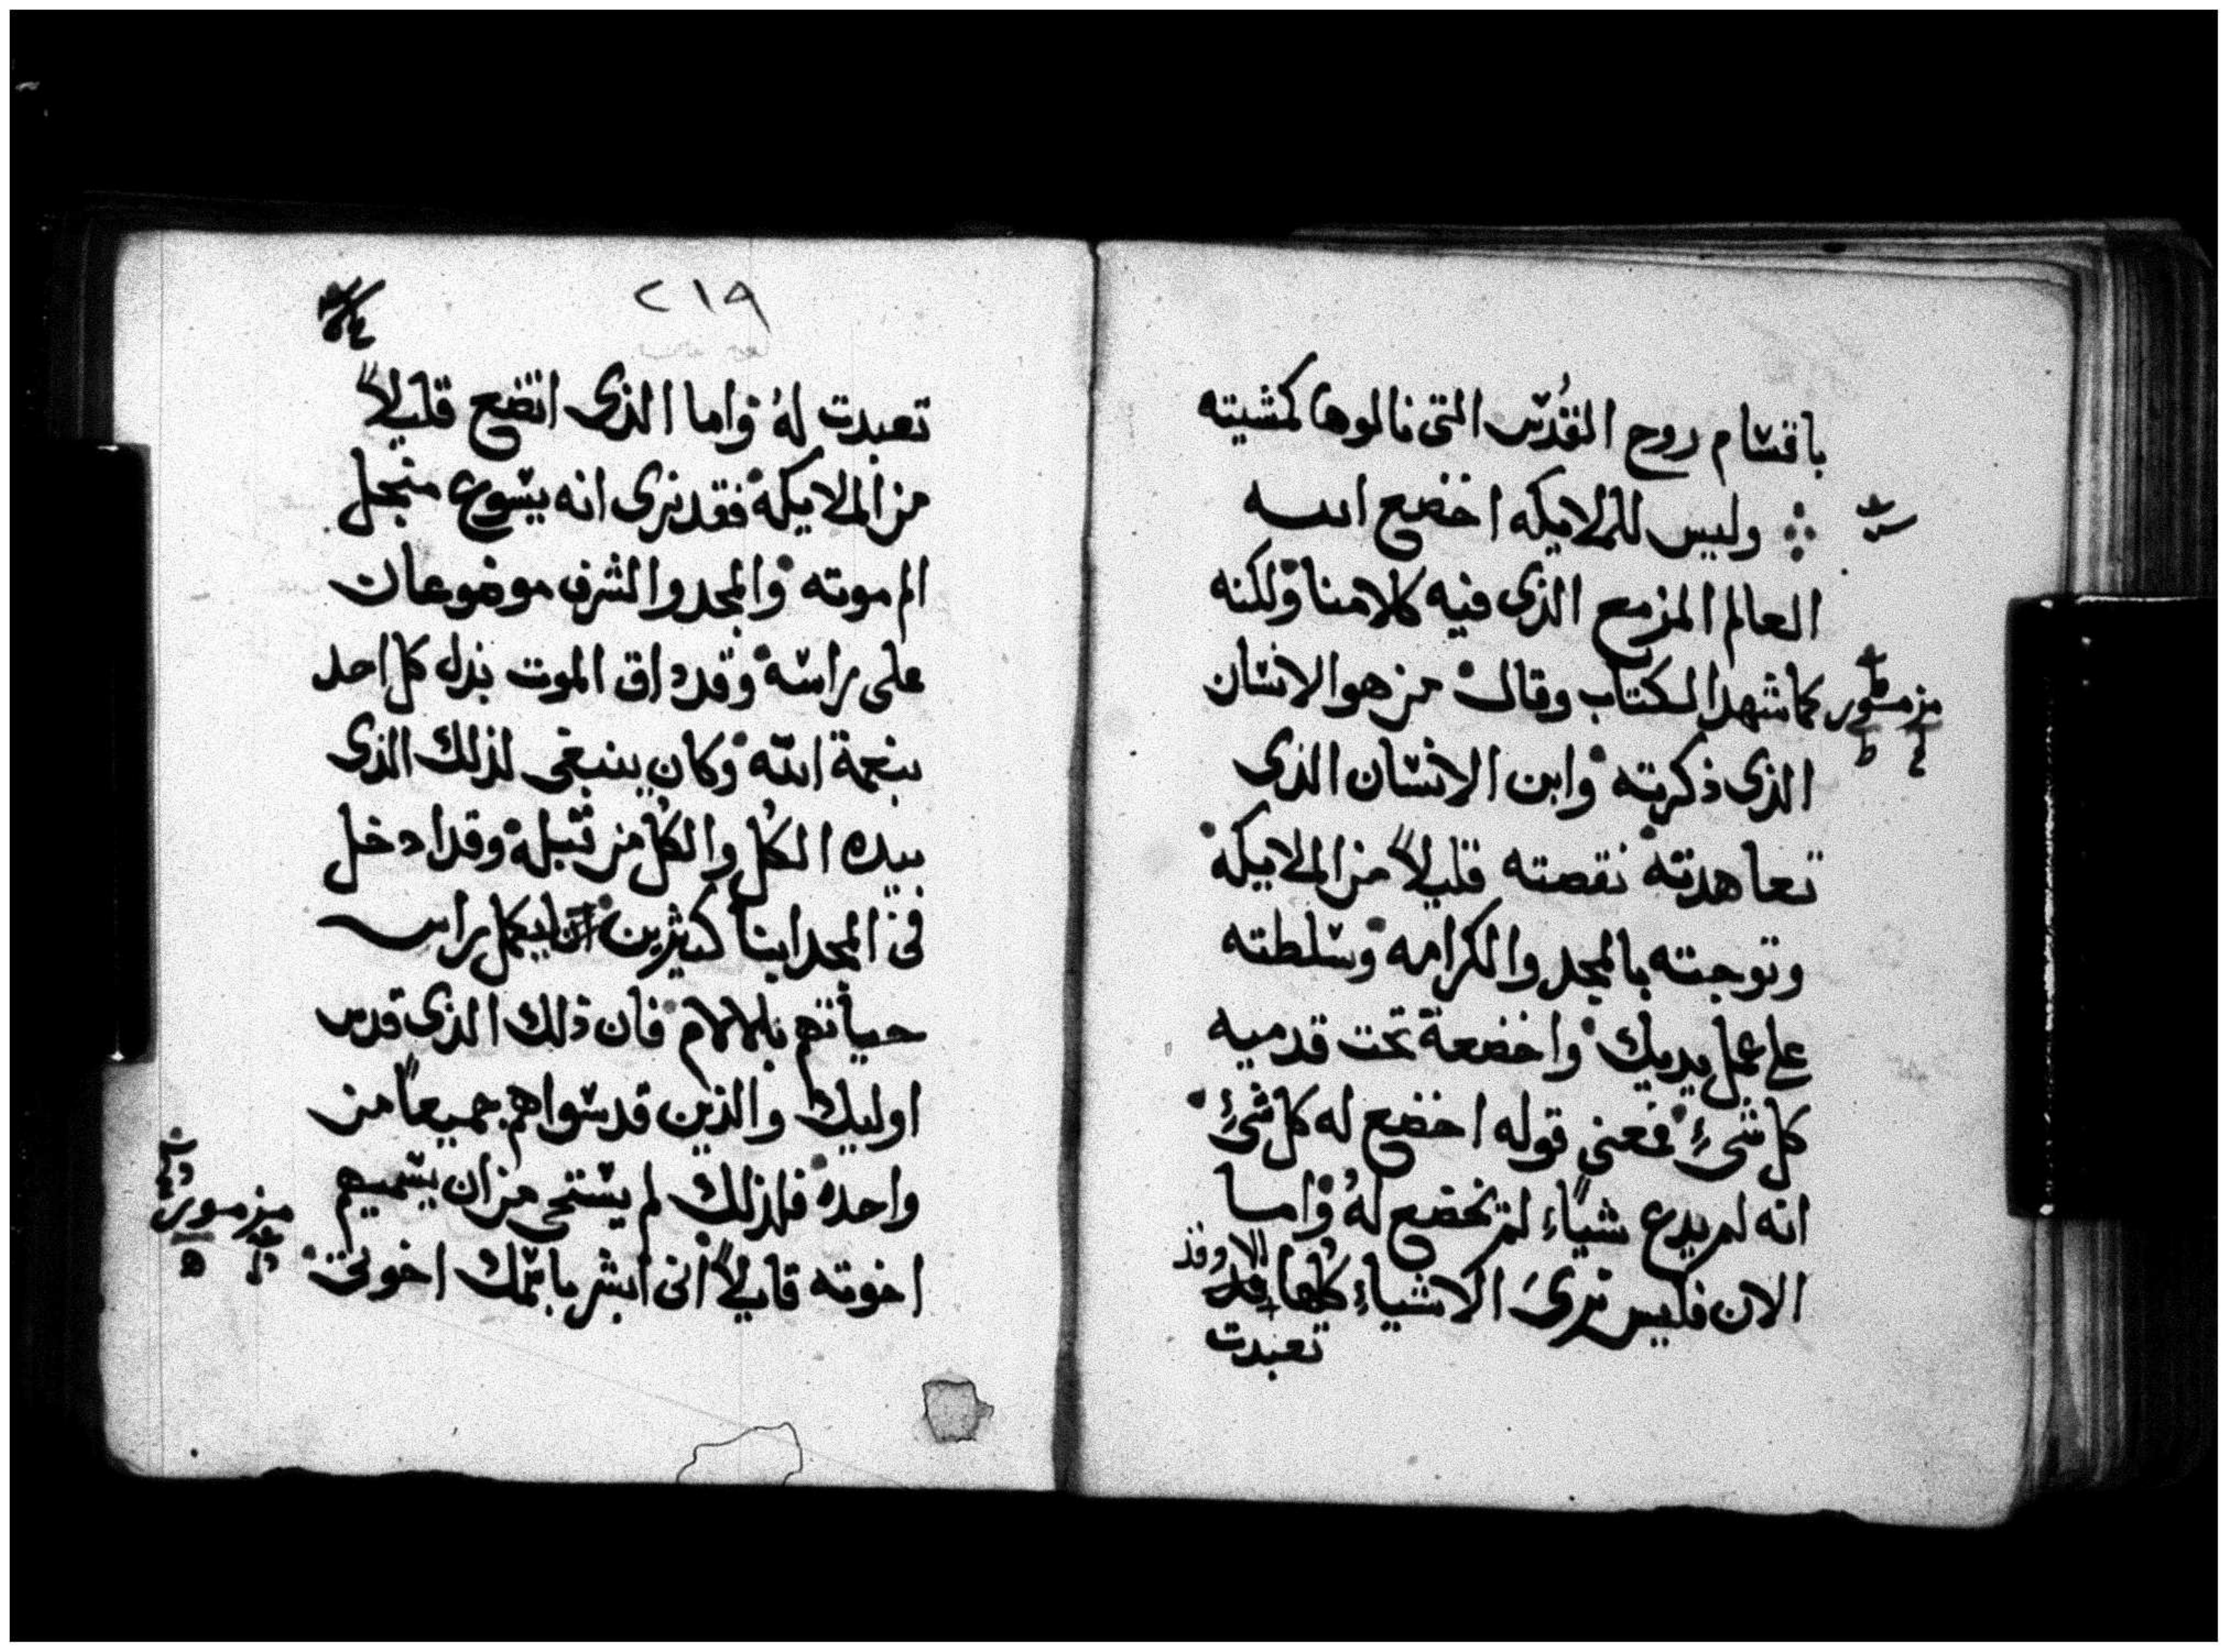 باقسام روح القدس التى نالوها كمشيته
وليس للملايكه اخضع الله
العالم المزمع الذى فيه كلامنا ولكنه
كما شهد الكتاب وقال من هو الانسان
مزمور
الذى ذكرته وابن الانسان الذى
تعاهدته نقصته قليلاً من الملايكه
وتوجته بالمجد والكرامه وسلطته
على عمل يديك واخضعة تحت قدميه
كل شىء فمعنى قوله اخضع له كل شىء
انه لم يدع شياء لم تخضع لهُ واما
الان فليس نرى الاشياء كلها
تعبدت
٢١٩
تعبدت لهُ واما الذى اتضع قليلاً
من الملايكة فقد نرى انه يسوع منجل
الم موته والمجد والشرف موضوعان
على راسه وقد داق الموت بدل كل احد
بنعمة الله وكان ينبغى لذلك الذى
بيده الكل والكل من قبله وقد ادخل
فى المجد ابنا كثيرين ليكمل راس
حياتهم بالالام فان ذلك الذى قدس
اوليك والذين قدسوا هم جميعاً من
واحد فلذلك لم يستحى من ان يسميهم
اخوته قايلاً انى ابشر باسمك اخوتى
مزمور